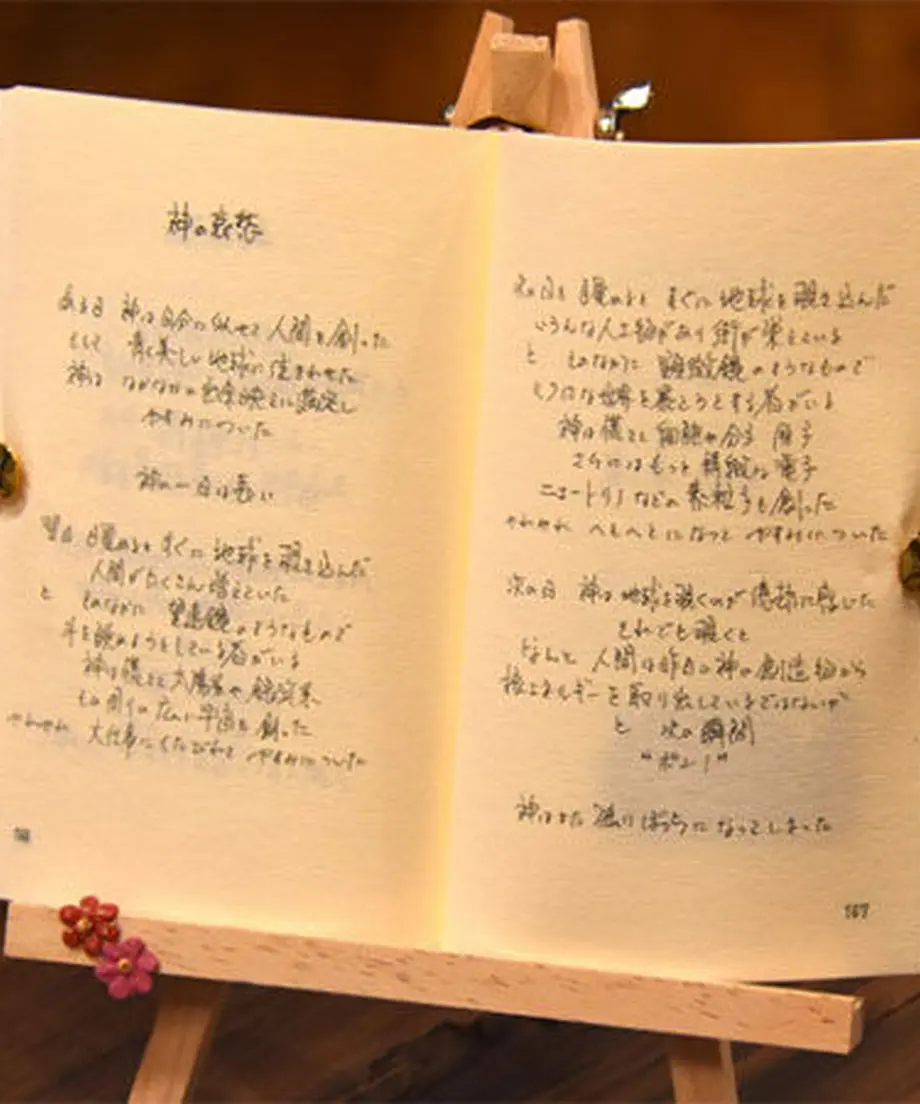 神の哀愁
ある日 神は自分に似せて人間を創った
そして 青く美しい地球に住まわせた
神は なかなかの出来映えに満足し
やすみについた
神の一日は長い
翌日 目覚めると すぐに 地球を覗き込んだ
人間がたくさん増えていた
と そのなかに 望遠鏡のようなもので
神は慌てて太陽系や銀河系
その周りの広い宇宙を創った
やれやれ 大仕事にくたびれて やすみについた
次の日も 目覚めると すぐに 地球を覗き込んだ
いろんな人工物があり街が栄えている
と そのなかに 顕微鏡のようなもので
ミクロな世界を暴こうとする者がいる
神は慌てて 細胞や分子 原子
さらにはもっと 微細な 電子
ニュートリノなどの素粒子も創った
やれやれ へとへとになって やすみについた
次の日 神は地球を覗くのが億劫に感じた
それでも覗くと
なんと 人間は昨日の神の創造物から
核エネルギーを取り出しているではないか
と 次の瞬間
神はまた 独りぼっちに なってしまった
167